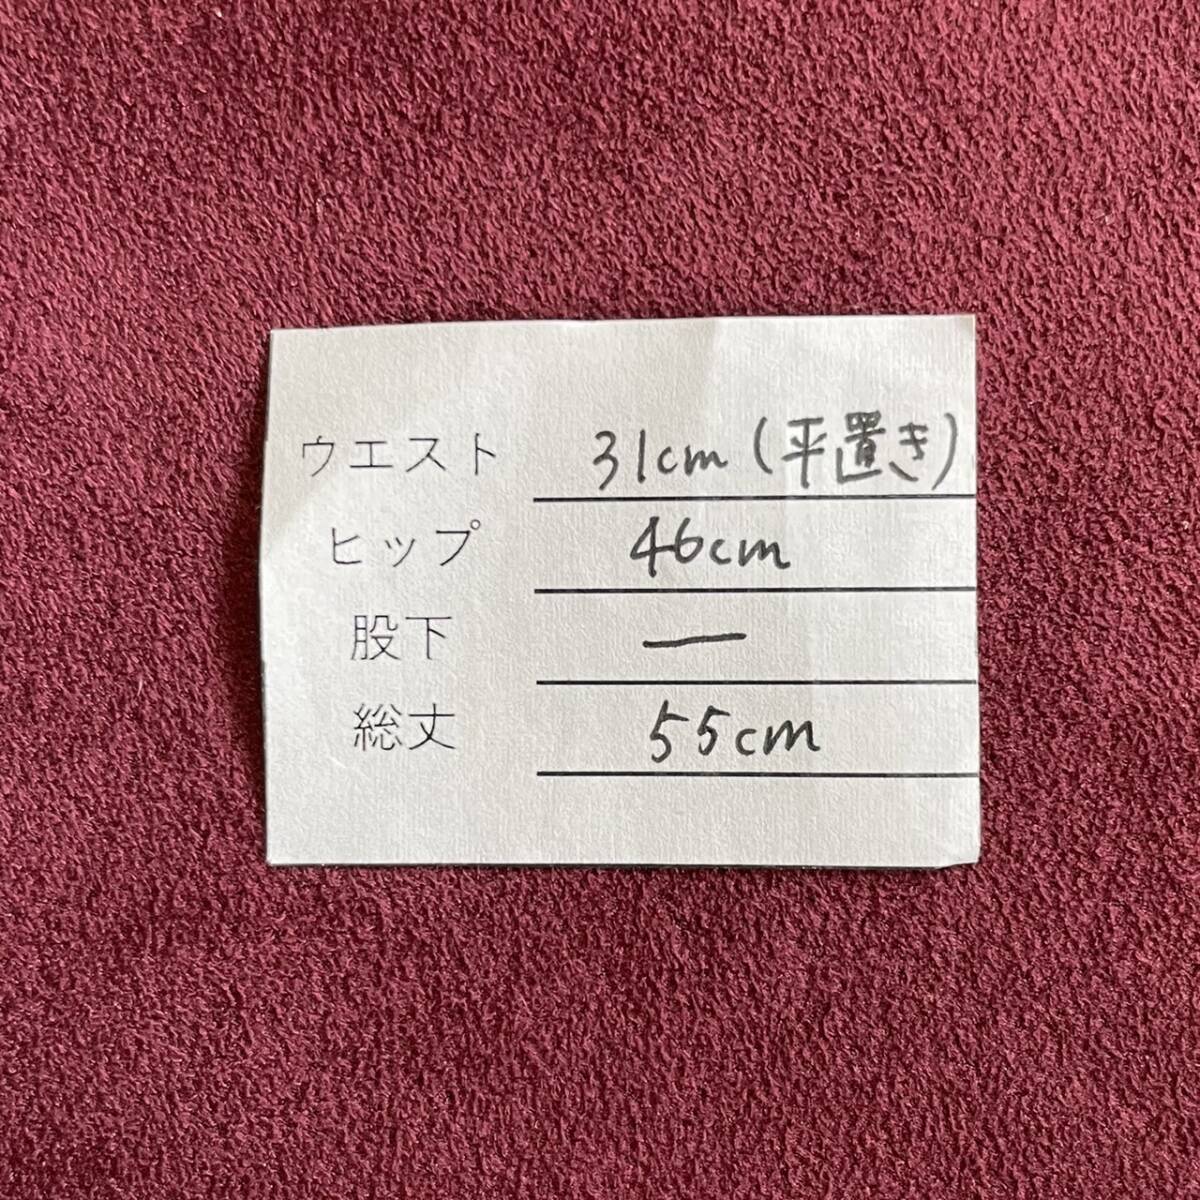 ウエスト 31cm (平置き)
ヒップ 46cm
股下 ー
総丈 55cm